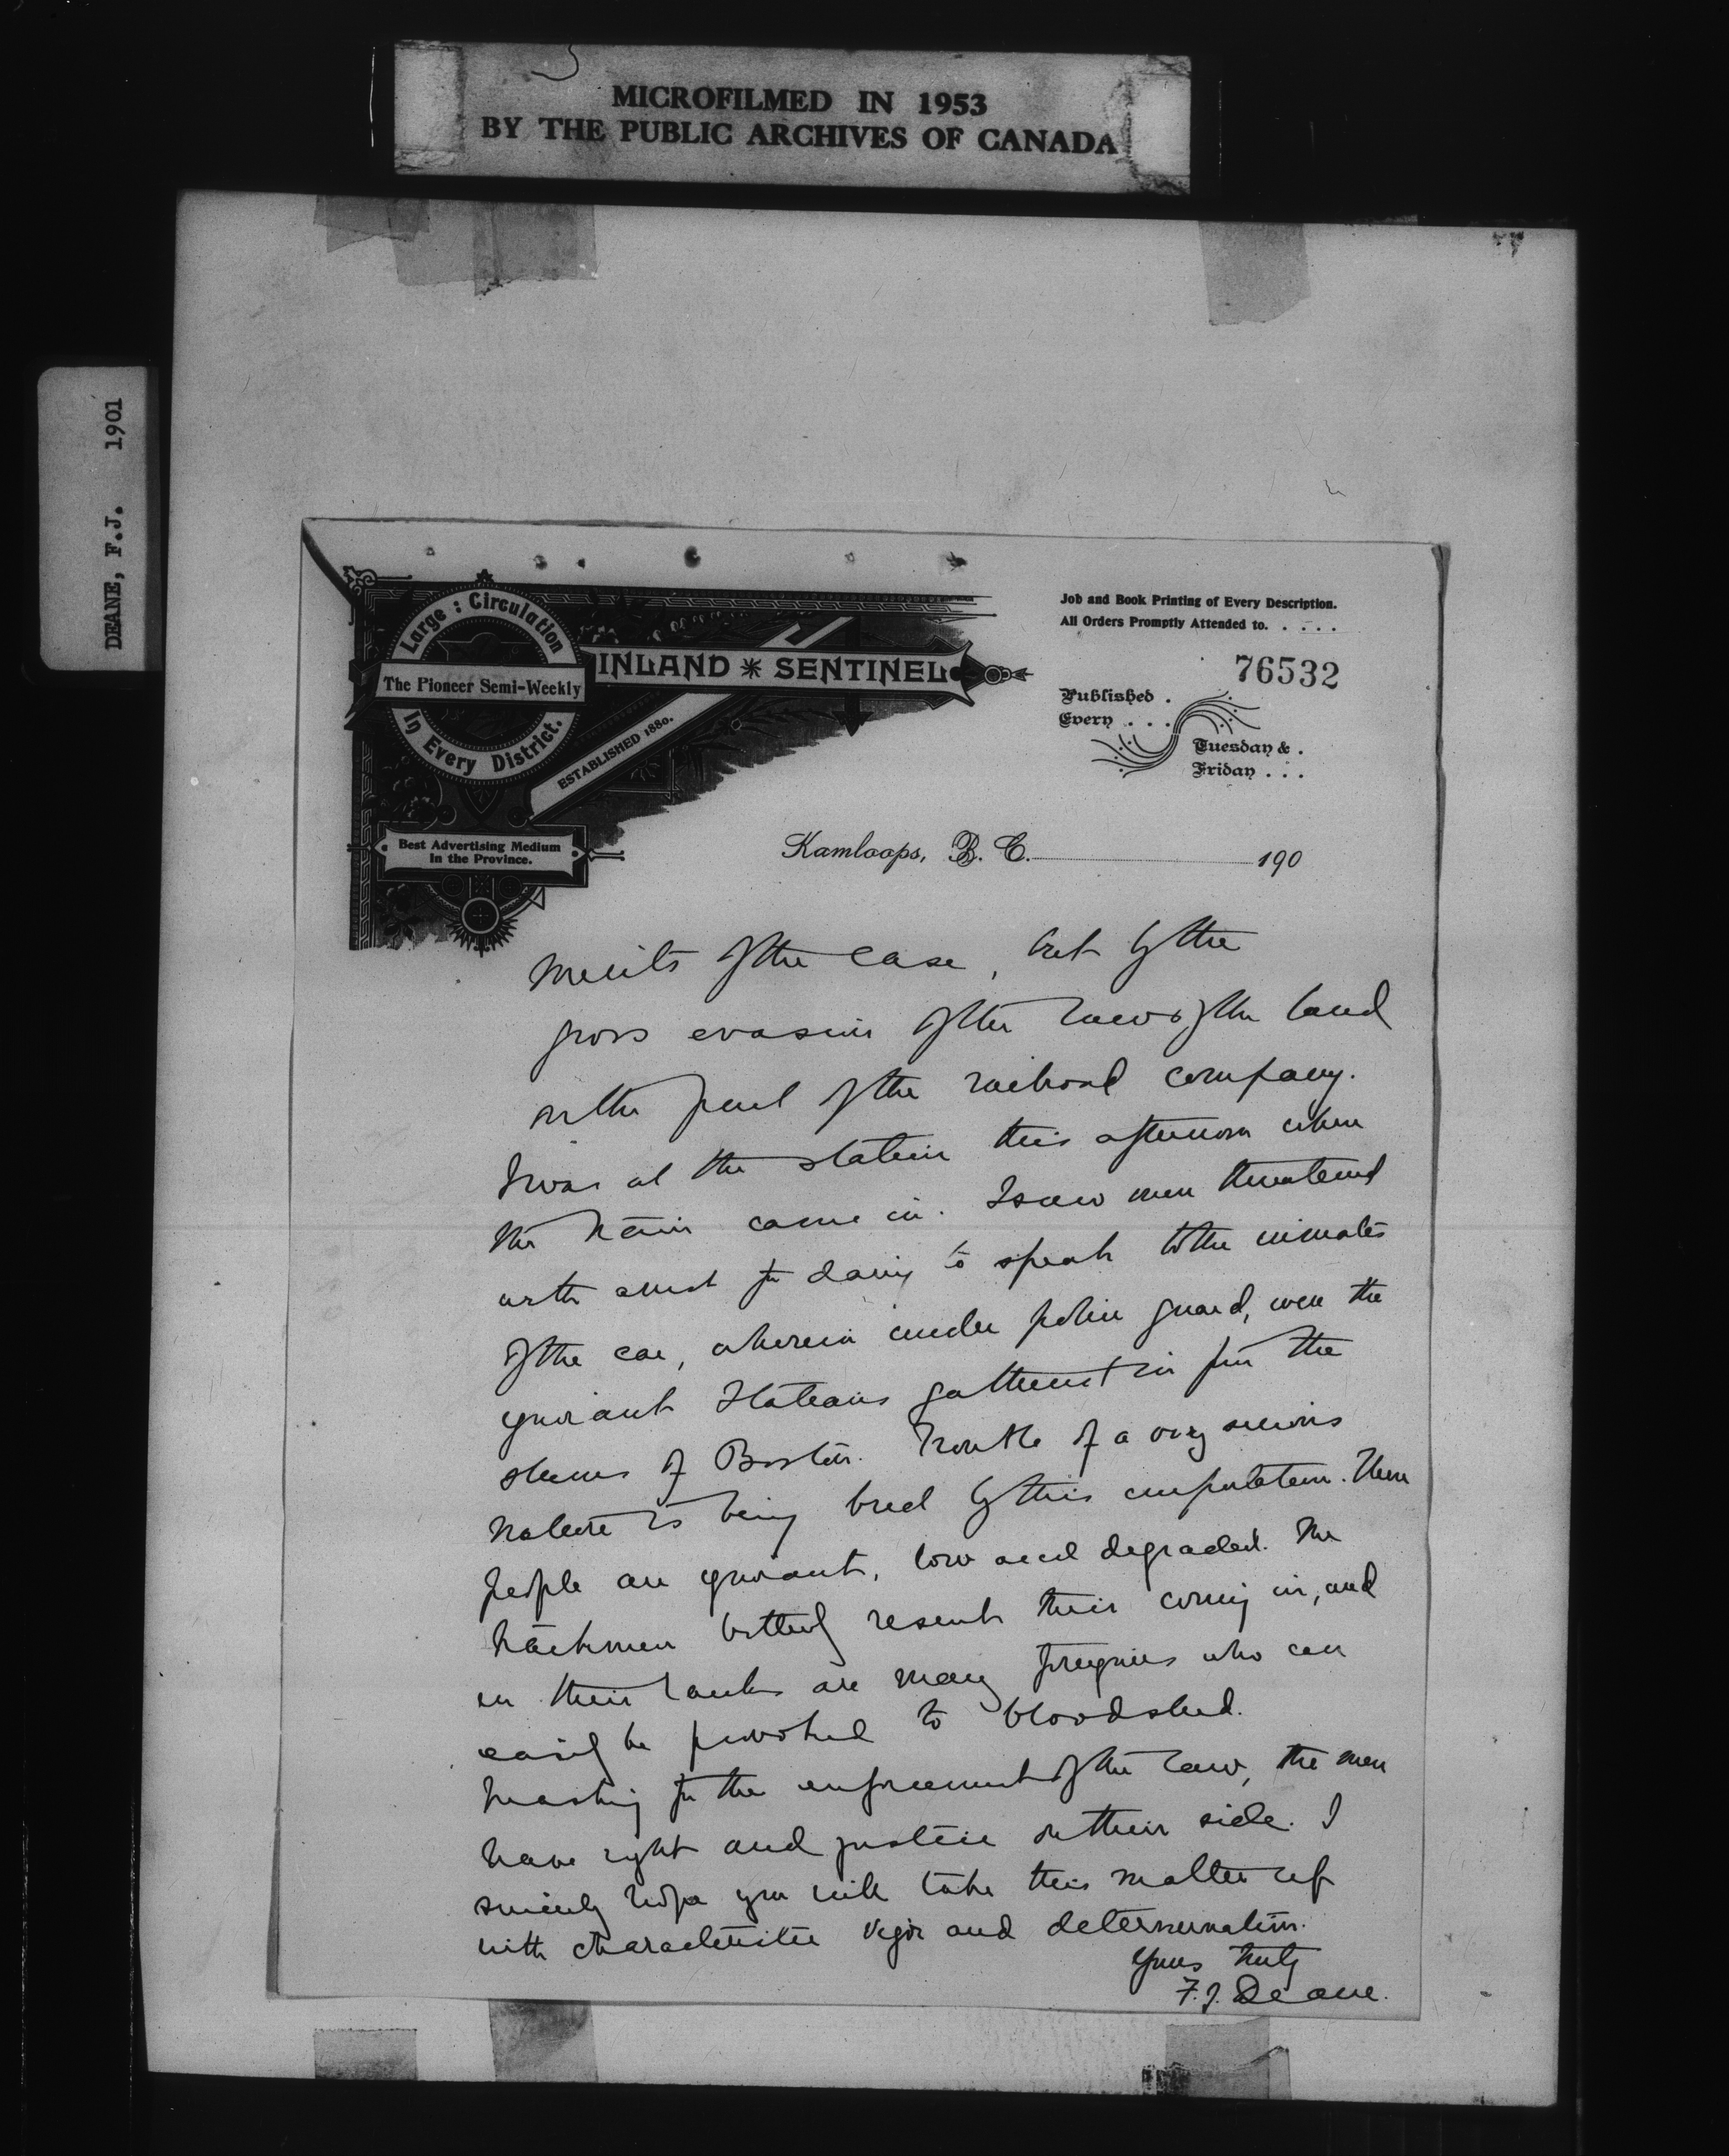 MICROFILMED IN 1953
BY THE PUBLIC ARCHIVES OF CANADA
DEANE, F.J. 1901
Large : Circulation
The Pioneer Semi-Weekly
In Every District.
INLAND SENTINEL
ESTABLISHED 1880.
Best Advertising Medium
in the Province.
Job and Book Printing of Every Description.
All Orders Promptly Attended to. . . . .
76532
Published .
Every . . .
Tuesday & .
Friday . . .
Kamloops, B. C. 190
merits of the case, but by the
gross evasion of the laws of the land
on the part of the railroad company.
I was at the station this afternoon when
the train came in. I saw men threatened
with arrest for daring to speak to the inmates
of the car, wherein under police guard, were the
ignorant Italians gathered in from the
slums of Boston. Trouble of a very serious
nature is being bred by this importation. These
people are ignorant, low and degraded. The
trackmen bitterly resent their coming in, and
in their ranks are many foreigners who can
easily be provoked to bloodshed.
for the enforcement of the law, the men
have right and justice on their side. I
sincerely hope you will take this matter up
with characteristic vigor and determination.
Yours truly
F.J. Deane.